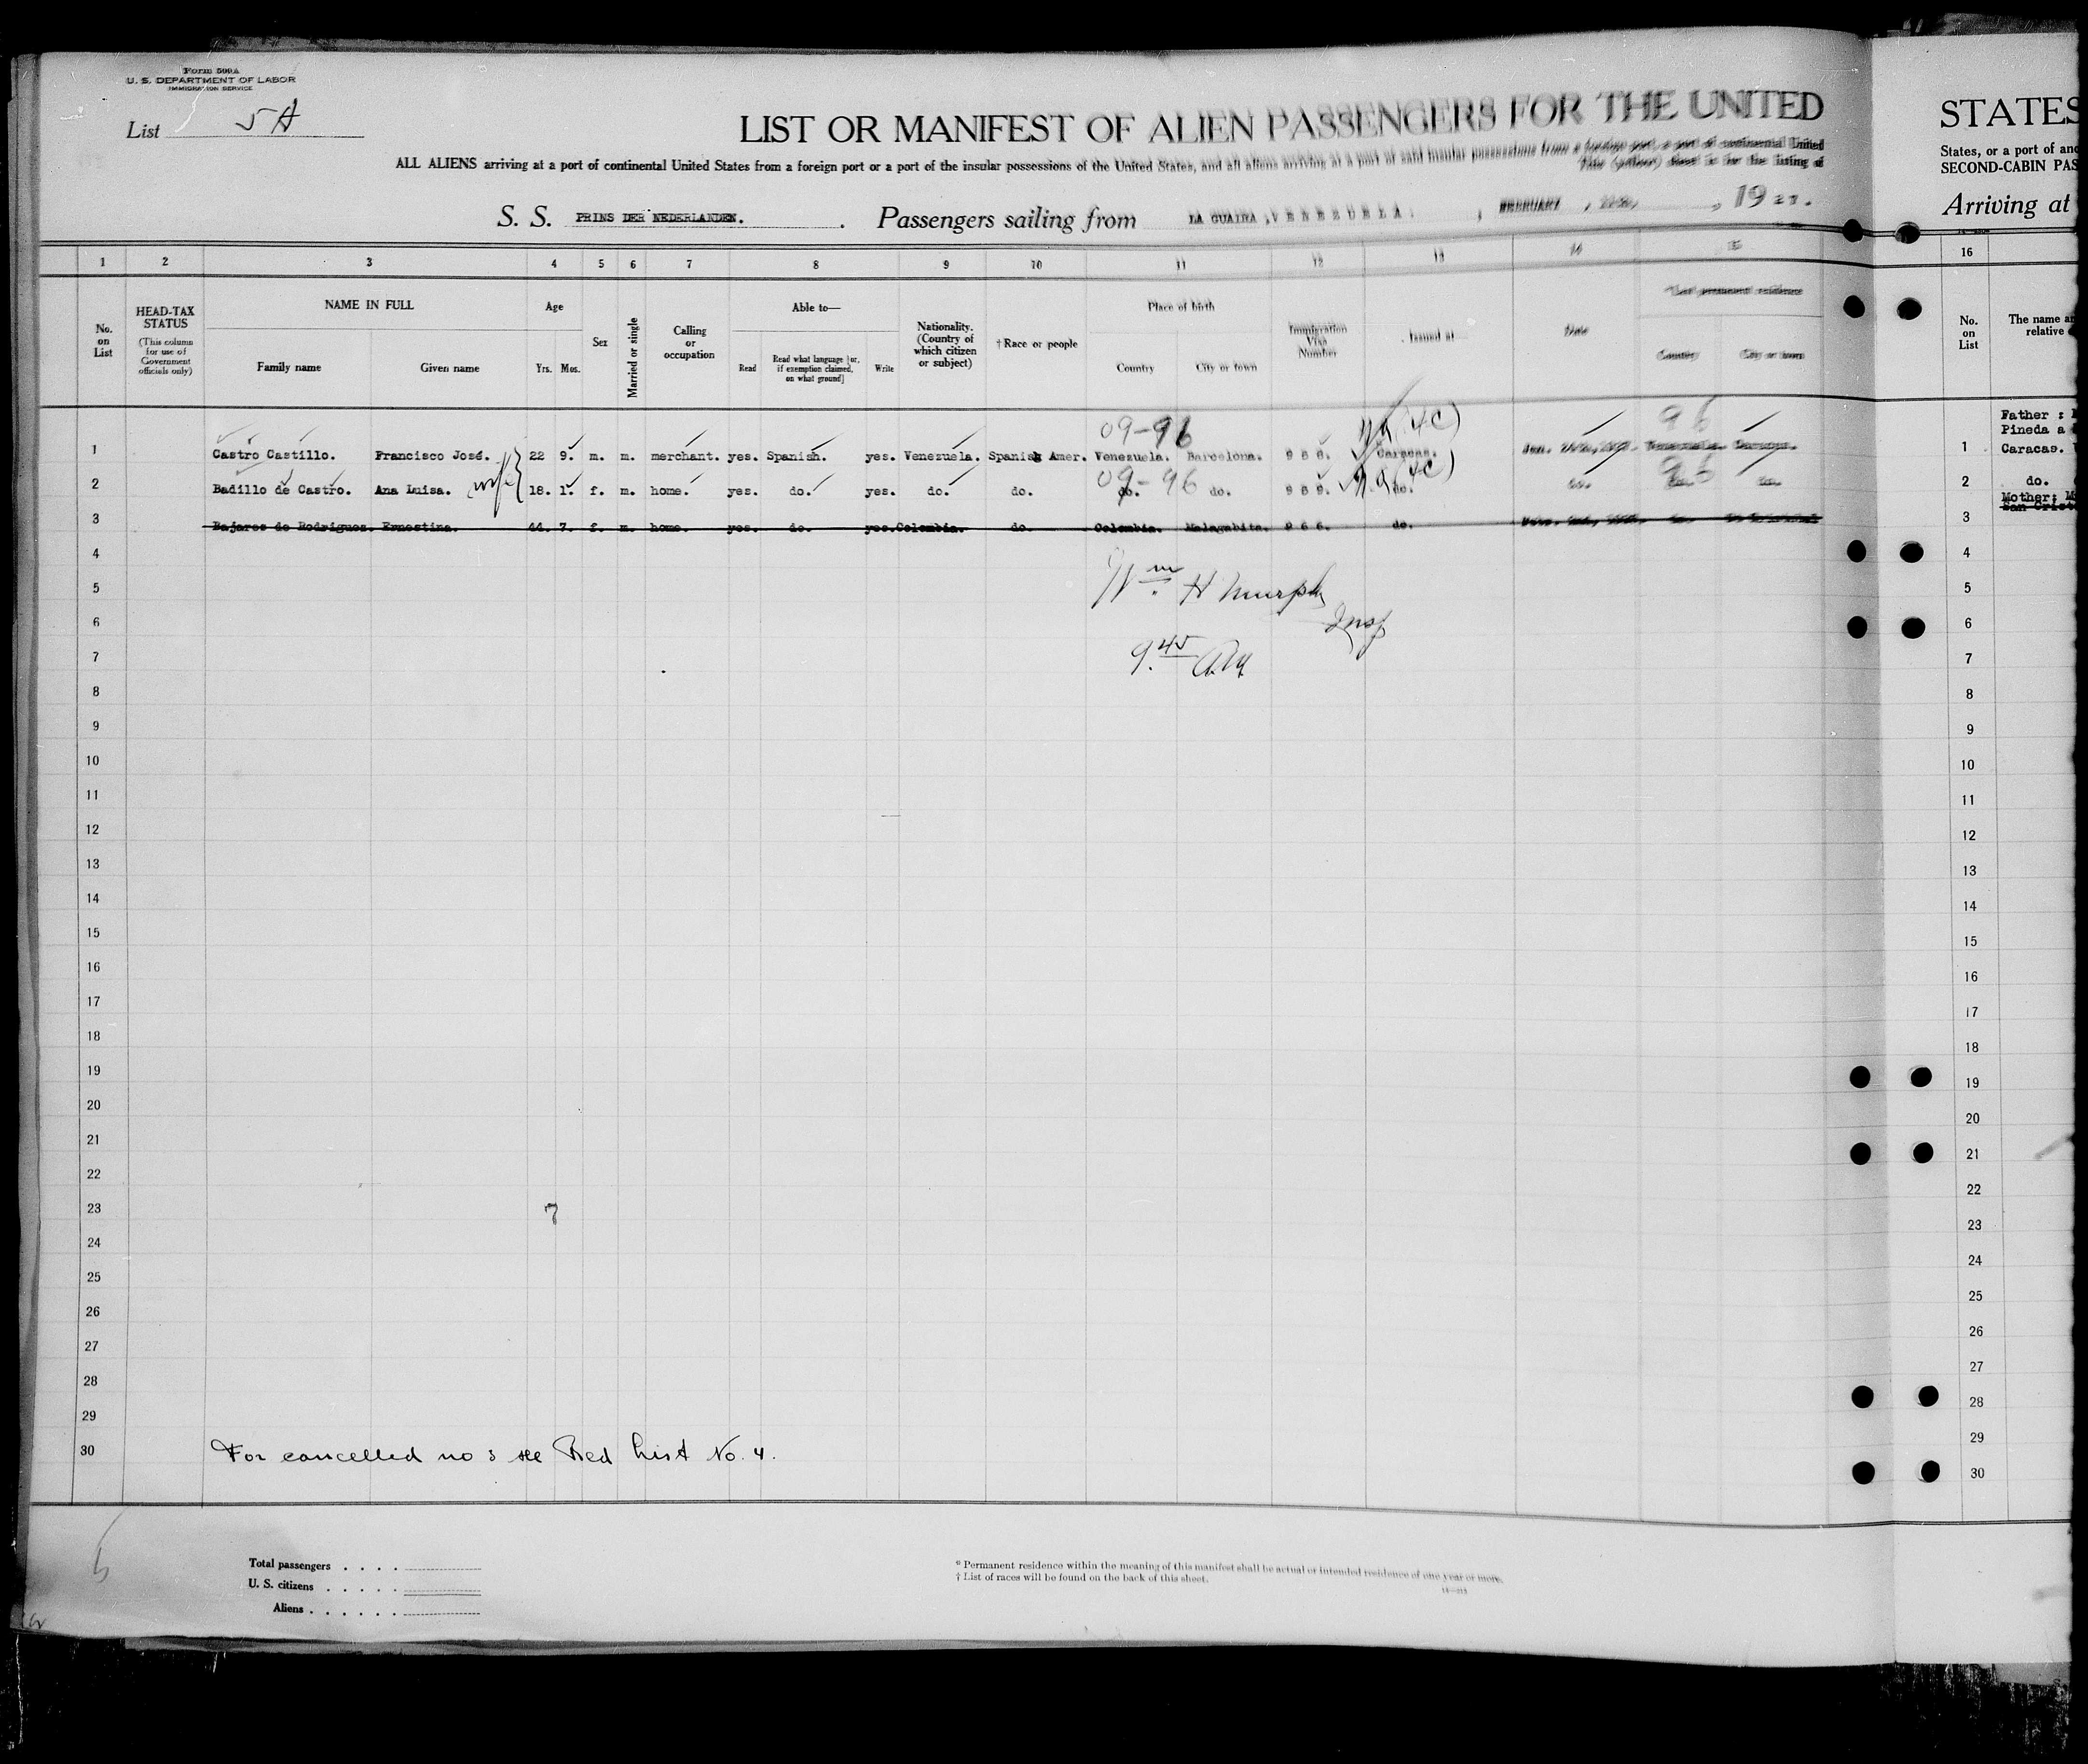 Form 500A
U. S. DEPARTMENT OF LABOR
IMMIGRATION SERVICE
List 5 A
LIST OR MANIFEST OF ALIEN PASSENGERS FOR THE UNITED
ALL ALIENS arriving at a port of continental United States from a foreign port or a part of the insular possessions of the United States, and all aliens arriving at a port of said insular possessions from a foreign port, a port of continental United
This (yellow) sheet is for the listing of
S. S. PRINS DER NEDERLANDEN. Passengers sailing from LA GUAIRA, VENEZUELA. , FEBRUARY , 1927.
1 2 3 4 5 6 7 8 9 10 11 12 13 14 15
No. on List
HEAD-TAX STATUS
(This column for use of Government officials only)
NAME IN FULL
Family name Given name
Age
Yrs. Mos.
Sex
Married or single
Calling or occupation
Able to—
Read
Read what language [or, if exemption claimed, on what ground]
Write
Nationality. (Country of which citizen or subject)
† Race or people
Place of birth
Country City or town
Immigration Visa Number
Issued at
Date
*Last permanent residence
Country City or town
09-96 (4C) 96
1 Castro Castillo. Francisco José. 22 9. m. m. merchant. yes. Spanish. yes. Venezuela. Spanish Amer. Venezuela. Barcelona. Caracas. Venezuela. Caracas.
wife
09-96 (4C) 96
2 Badillo de Castro. Ana Luisa. 18. 1. f. m. home. yes. do. yes. do. do. do. do. do. do. do. do.
3 Bajares de Rodriguez. Ernestina. 44. 7. f. m. home. yes. do. yes. Colombia. do. Colombia. Malagabita. 9 6 6. do.
4
5
6
7
8
9
10
11
12
13
14
15
16
17
18
19
20
21
22
23
24
25
26
27
28
29
30
Wm H Murphy
Insp
9.45 AM
7
For cancelled no 3 see Red List No. 4.
Total passengers
U. S. citizens
Aliens
* Permanent residence within the meaning of this manifest shall be actual or intended residence of one year or more.
† List of races will be found on the back of this sheet.
STATES
States, or a port of
SECOND-CABIN
Arriving at
16
No. on List
The name
relative
Father :
Pineda a
1 Caracas.
2 do.
Mother:
3
4
5
6
7
8
9
10
11
12
13
14
15
16
17
18
19
20
21
22
23
24
25
26
27
28
29
30